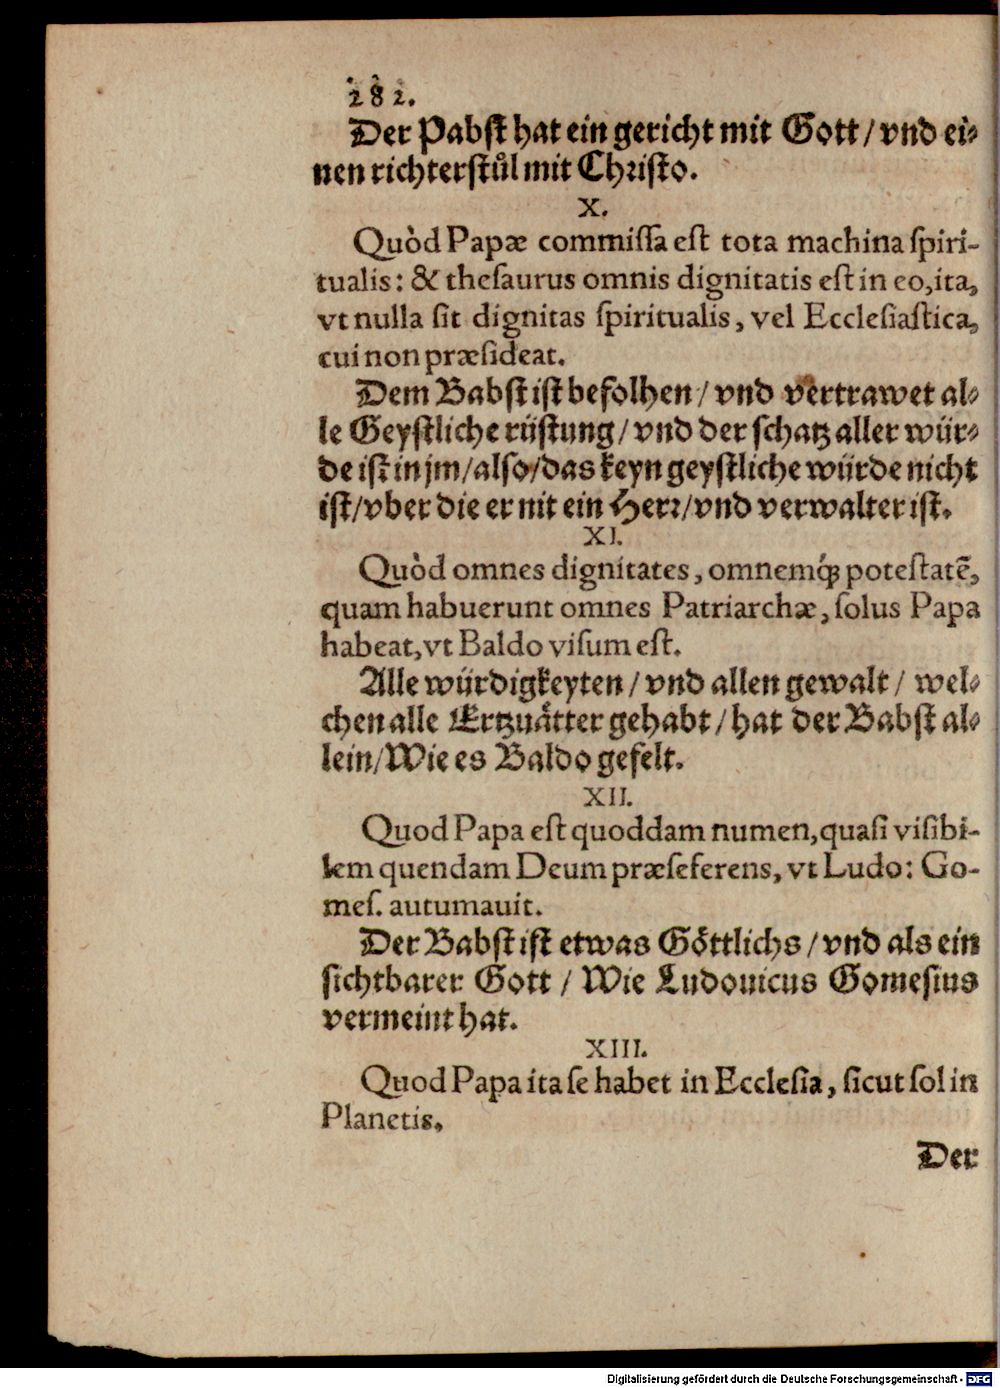 282.
Der Pabſt hat ein gericht mit Gott / vnd ei⸗
nen richterſtůl mit Chriſto.
X.
Quòd Papæ commiſſa eſt tota machina ſpiri-
tualis: & theſaurus omnis dignitatis eſt in eo, ita,
vt nulla ſit dignitas ſpiritualis, vel Eccleſiaſtica,
cui non præſideat.
Dem Babſt iſt befolhen / vnd vertrawet al⸗
le Geyſtliche rüſtung / vnd der ſchatz aller wür⸗
de iſt in jm / alſo / das keyn geyſtliche würde nicht
iſt / vber die er nit ein Herꝛ / vnd verwalter iſt.
XI.
Quòd omnes dignitates, omnemq́; poteſtatē,
quam habuerunt omnes Patriarchæ, ſolus Papa
habeat, vt Baldo viſum eſt.
Alle würdigkeyten / vnd allen gewalt / wel⸗
chen alle Ertzuåtter gehabt / hat der Babſt al⸗
lein / Wie es Baldo gefelt.
XII.
Quod Papa eſt quoddam numen, quaſi viſibi-
lem quendam Deum præſeferens, vt Ludo: Go-
meſ. autumauit.
Der Babſt iſt etwas Göttlichs / vnd als ein
ſichtbarer Gott / Wie Ludouicus Gomeſius
vermeint hat.
XIII.
Quod Papa ita ſe habet in Eccleſia, ſicut ſol in
Planetis.
Der
Digitalisierung gefördert durch die Deutsche Forschungsgemeinschaft - DFG